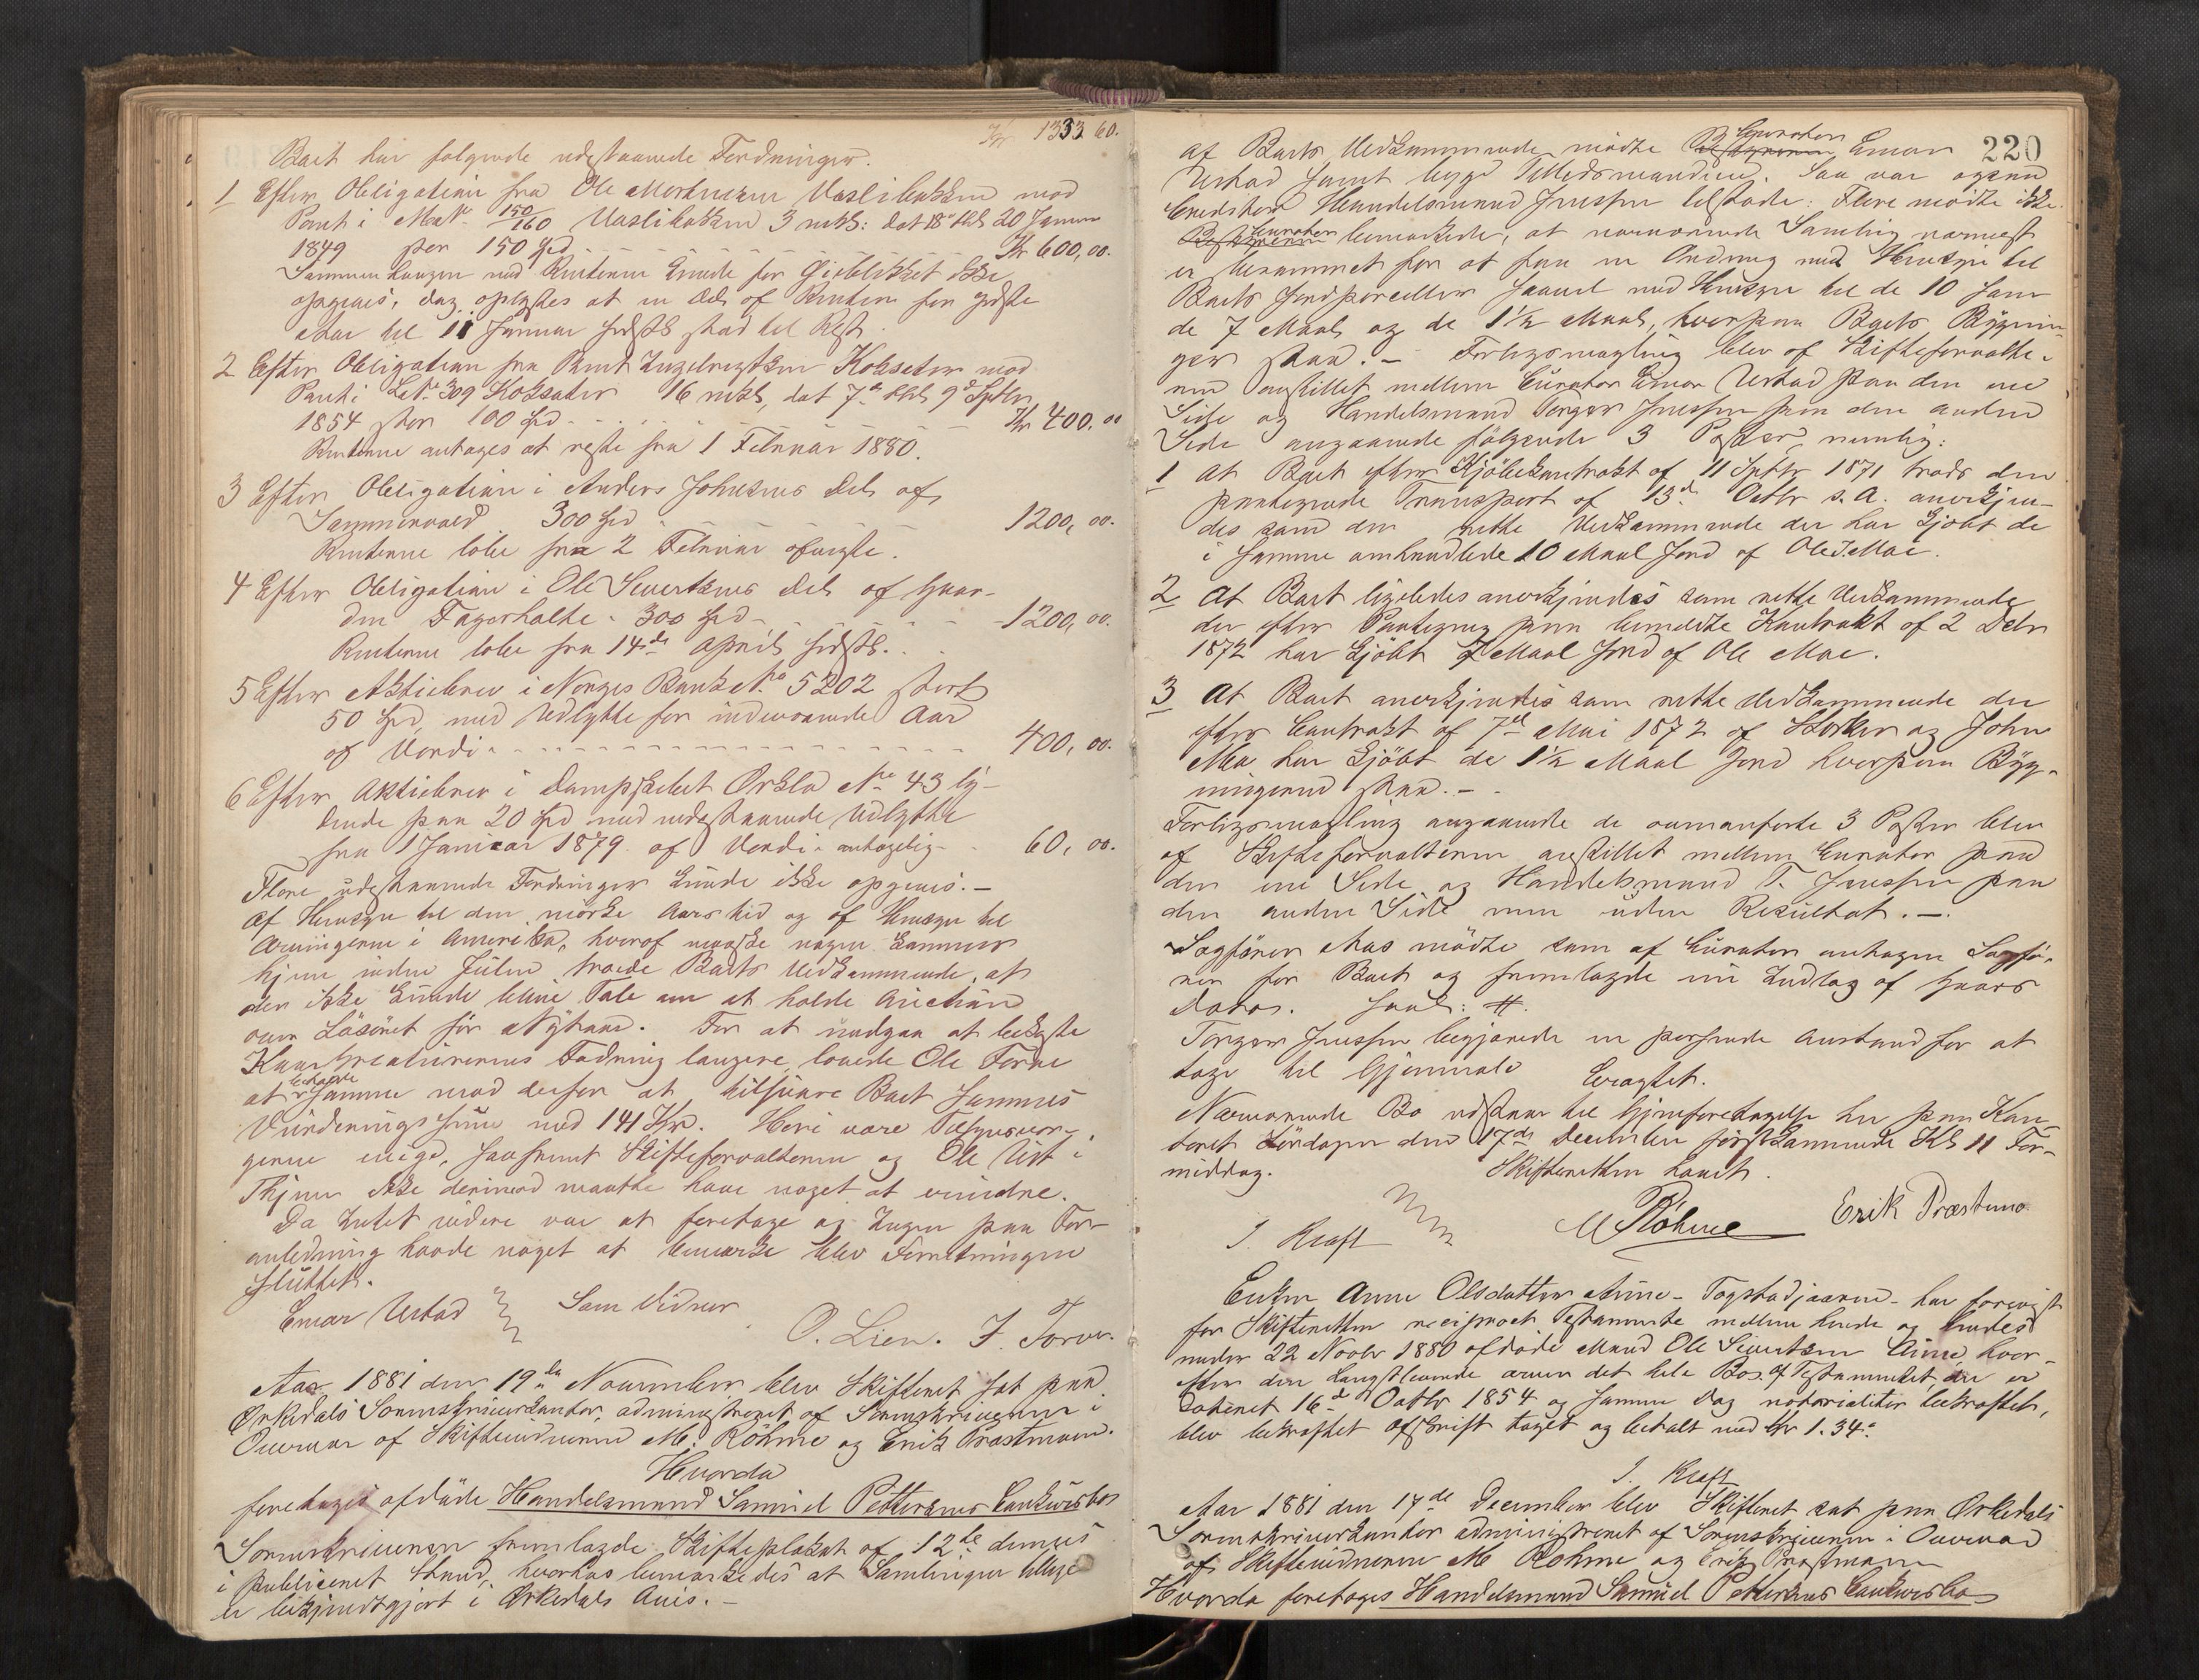 Kr 1333 60.
Boet har følgende udestaaende Fordringer.
1 Efter Obligation fra Ole Mortensen Vaslibakken mod
Pant i Mat No 150/160 Vaslibakken 3 mkl: dat 18 20 Januar
1849 stor 150 Spd - - - - Kr 600,00.
Sammenhængen med Renterne kunde for Øieblikket ikke
opgives, dog oplystes at en Del af Renten for sidste
Aar til 11 Januar sidstl. stod til Rest.
2 Efter Obligation fra Bernt Ingebrigtsen Kokseter mod
Pant i L.No 309 Kokseter 16 mkl, dat 7de 9de Septbr
1854 stor 100 Spd - - - - - Kr 400,00
Renterne antages at reste fra 1 Februar 1880.
3 Efter Obligation i Anders Johnsens Del af
Sommervold 300 Spd - - - - 1200,00.
Renterne løbe fra 2 Februar afvigte.
4 Efter Obligation i Ole Sivertsens Del af Gaar-
den Fagerholte - 300 Spd - - - - 1200,00.
Renterne løbe fra 14de April sidstl. - -
5 Efter Aktiebrev i Norges Bank No 5202 stort
50 Spd, med Udbytte for indeværende Aar
af Værdi - - - - - - - - - 400,00.
6 Efter Aktiebrev i Dampskibet Orkla No 43 ly-
dende paa 20 Spd med udestaaende Udbytte
fra 1 Januar 1879 af Værdi antagelig - - 60,00.
Flere udestaaende Fordringer kunde ikke opgives. -
Af Hensyn til den mørke Aarstid og af Hensyn til
Arvingerne i Amerika, hvoraf maaske nogen kommer
hjem inden Julen troede Boets Vedkommende, at
der ikke kunde blive Tale om at holde Auction
over Løsøret før Nytaar. For at undgaa at bekoste
Kreaturernes Fodring længere, lovede Ole Forve
at beholde Samme mod derfor at tilsvare Boet Sammes
Vurderingssum med 141 Kr. Heri vare Tilsynsvær-
gerne enige, saasnart Skifteforvalteren og Ole Ust i
Thjem ikke derimod maatte have noget at erindre.
Da Intet videre var at foretage og Ingen paa For-
anledning havde noget at bemærke blev Forretningen
sluttet.
Einar Urstad Som Vidner
O. Lien. I. Forve.
Aar 1881 den 19de November blev Skifteret sat paa
Orkedals Sorenskriverkontor, administreret af Sorenskriveren i
Overvær af Skiftevidnerne M. Röhme og Erik Præstmoen.
Hvorda
foretages afdøde Handelsmand Samuel Pettersens Concursbo
Sorenskriveren fremlagde Skifteplakat af 12te dennes
i publiceret Stand, hvorhos bemærkedes at Samlingen tillige
er bekjendtgjort i Orkedals Avis. -
220
af Boets Vedkommende mødte Curator Einar
Urstad samt begge Tillidsmændene. Saa var ogsaa
Creditor Handelsmand Jenssen tilstede. Flere mødte ikke.
Curator bemærkede, at nærværende Samling nærmest
er berammet for at faa en Ordning med Hensyn til
Boets Jordparceller saavel med Hensyn til de 10 som
de 7 Maal og de 1½ Maal, hvorpaa Boets Bygnin-
ger staa. - Forligsmægling blev af Skifteforvalte-
ren anstillet mellem Curator Einar Urstad paa den ene
Side og Handelsmand Torger Jenssen paa den anden
Side angaaende følgende 3 Poster, nemlig:
1 At Boet efter Kjøbekontrakt af 11 Septbr 1871 trods den
paategnede Transport af 13de Octbr s.A. anerkjen-
des som den rette Vedkommende der har kjøbt de
i Samme omhandlede 10 Maal Jord af Ole J. Moe.
2 At Boet ligeledes anerkjendes som rette Vedkommende
der efter Paategning paa bemeldte Kontrakt af 2 Decbr
1872 har kjøbt 7 Maal Jord af Ole Moe.
3 At Boet anerkjendes som rette Vedkommende der
efter Contrakt af 7de Mai 1872 af Storker og John
Moe har kjøbt de 1½ Maal Jord hvorpaa Byg-
ningerne staa. -
Forligsmægling angaaende de ovenanførte 3 Poster blev
af Skifteforvalteren anstillet mellem Curator paa
den ene Side og Handelsmand T. Jenssen paa
den anden Side men uden Resultat. -
Sagfører Aas mødte som af Curator antagen Sagfø-
rer for Boet og fremlagde en Indlæg af Gaars
Dato. saal: #.
Torger Jenssen begjærede en passende Anstand for at
tage til Gjenmæle Eragtet.
Nærværende Bo udstaar til Gjenforetagelse her paa Kon-
toret Løverdagen den 17de December førstkommende Kl 11 For-
middag. Skifteretten hævet.
J. Kraft M Röhme Erik Præstmo
Enken Anne Olsdatter Aune - Togstadjaaren - har forevist
for Skifteretten reciprock Testamente mellem hende og hendes
under 22 Novbr 1880 afdøde Mand Ole Sivertsen Aune, hvor-
efter den Længstlevende arver det hele Bo. Af Testamentet, der er
dateret 16de Octbr 1854 og samme Dag notorialiter bekræftet,
blev bekræftet Afskrift taget og betalt med Kr 1.34.
J. Kraft
Aar 1881 den 17de December blev Skifteret sat paa Orkedals
Sorenskriverkontor administreret af Sorenskriveren i Overvær
af Skiftevidnerne M Röhme og Erik Præstmoen
Hvorda foretages Handelsmand Samuel Pettersens Concursbo